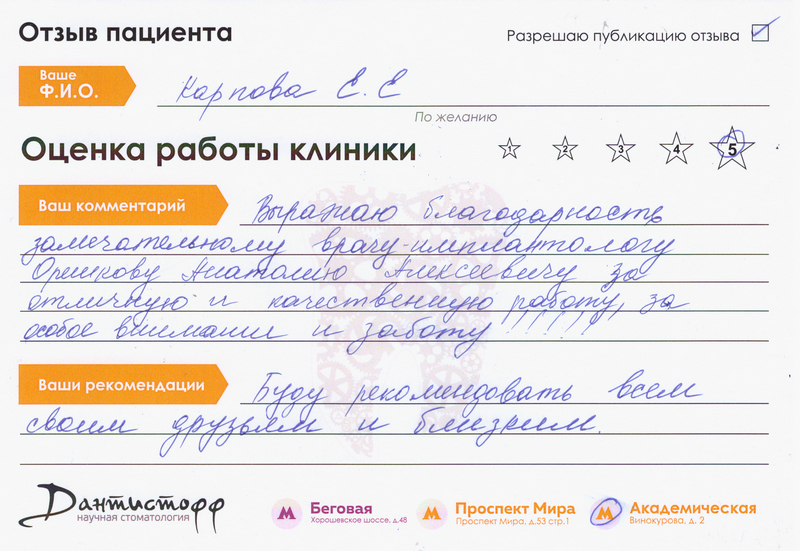 Отзыв пациента
Разрешаю публикацию отзыва
Ваше
Ф.И.О.
Карпова Е.Е
По желанию
Оценка работы клиники
1 2 3 4 5
Ваш комментарий
Выражаю благодарность
замечательному врачу-имплантологу
Орешкову Анатолию Алексеевичу за
отличную и качественную работу, за
особое внимании и заботу !!!!!!
Ваши рекомендации
Буду рекомендовать всем
своим друзьям и близким.
Дантистофф
научная стоматология
М Беговая
Хорошевское шоссе, д.48
М Проспект Мира
Проспект Мира, д.53 стр.1
М Академическая
Винокурова, д. 2